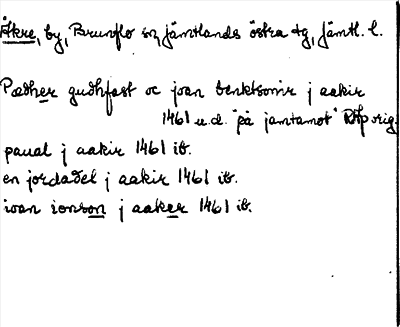 Åkre, by, Brunflo sn, Jämtlands östra tg, Jämtl. l.
Pædher gudhfast oc joan benktsomr j aakir
1461 u.d. "på jamtamot" RAp orig.
paual j aakir 1461 ib.
en jordadel j aakir 1461 ib.
ioan ionson j aaker 1461 ib.